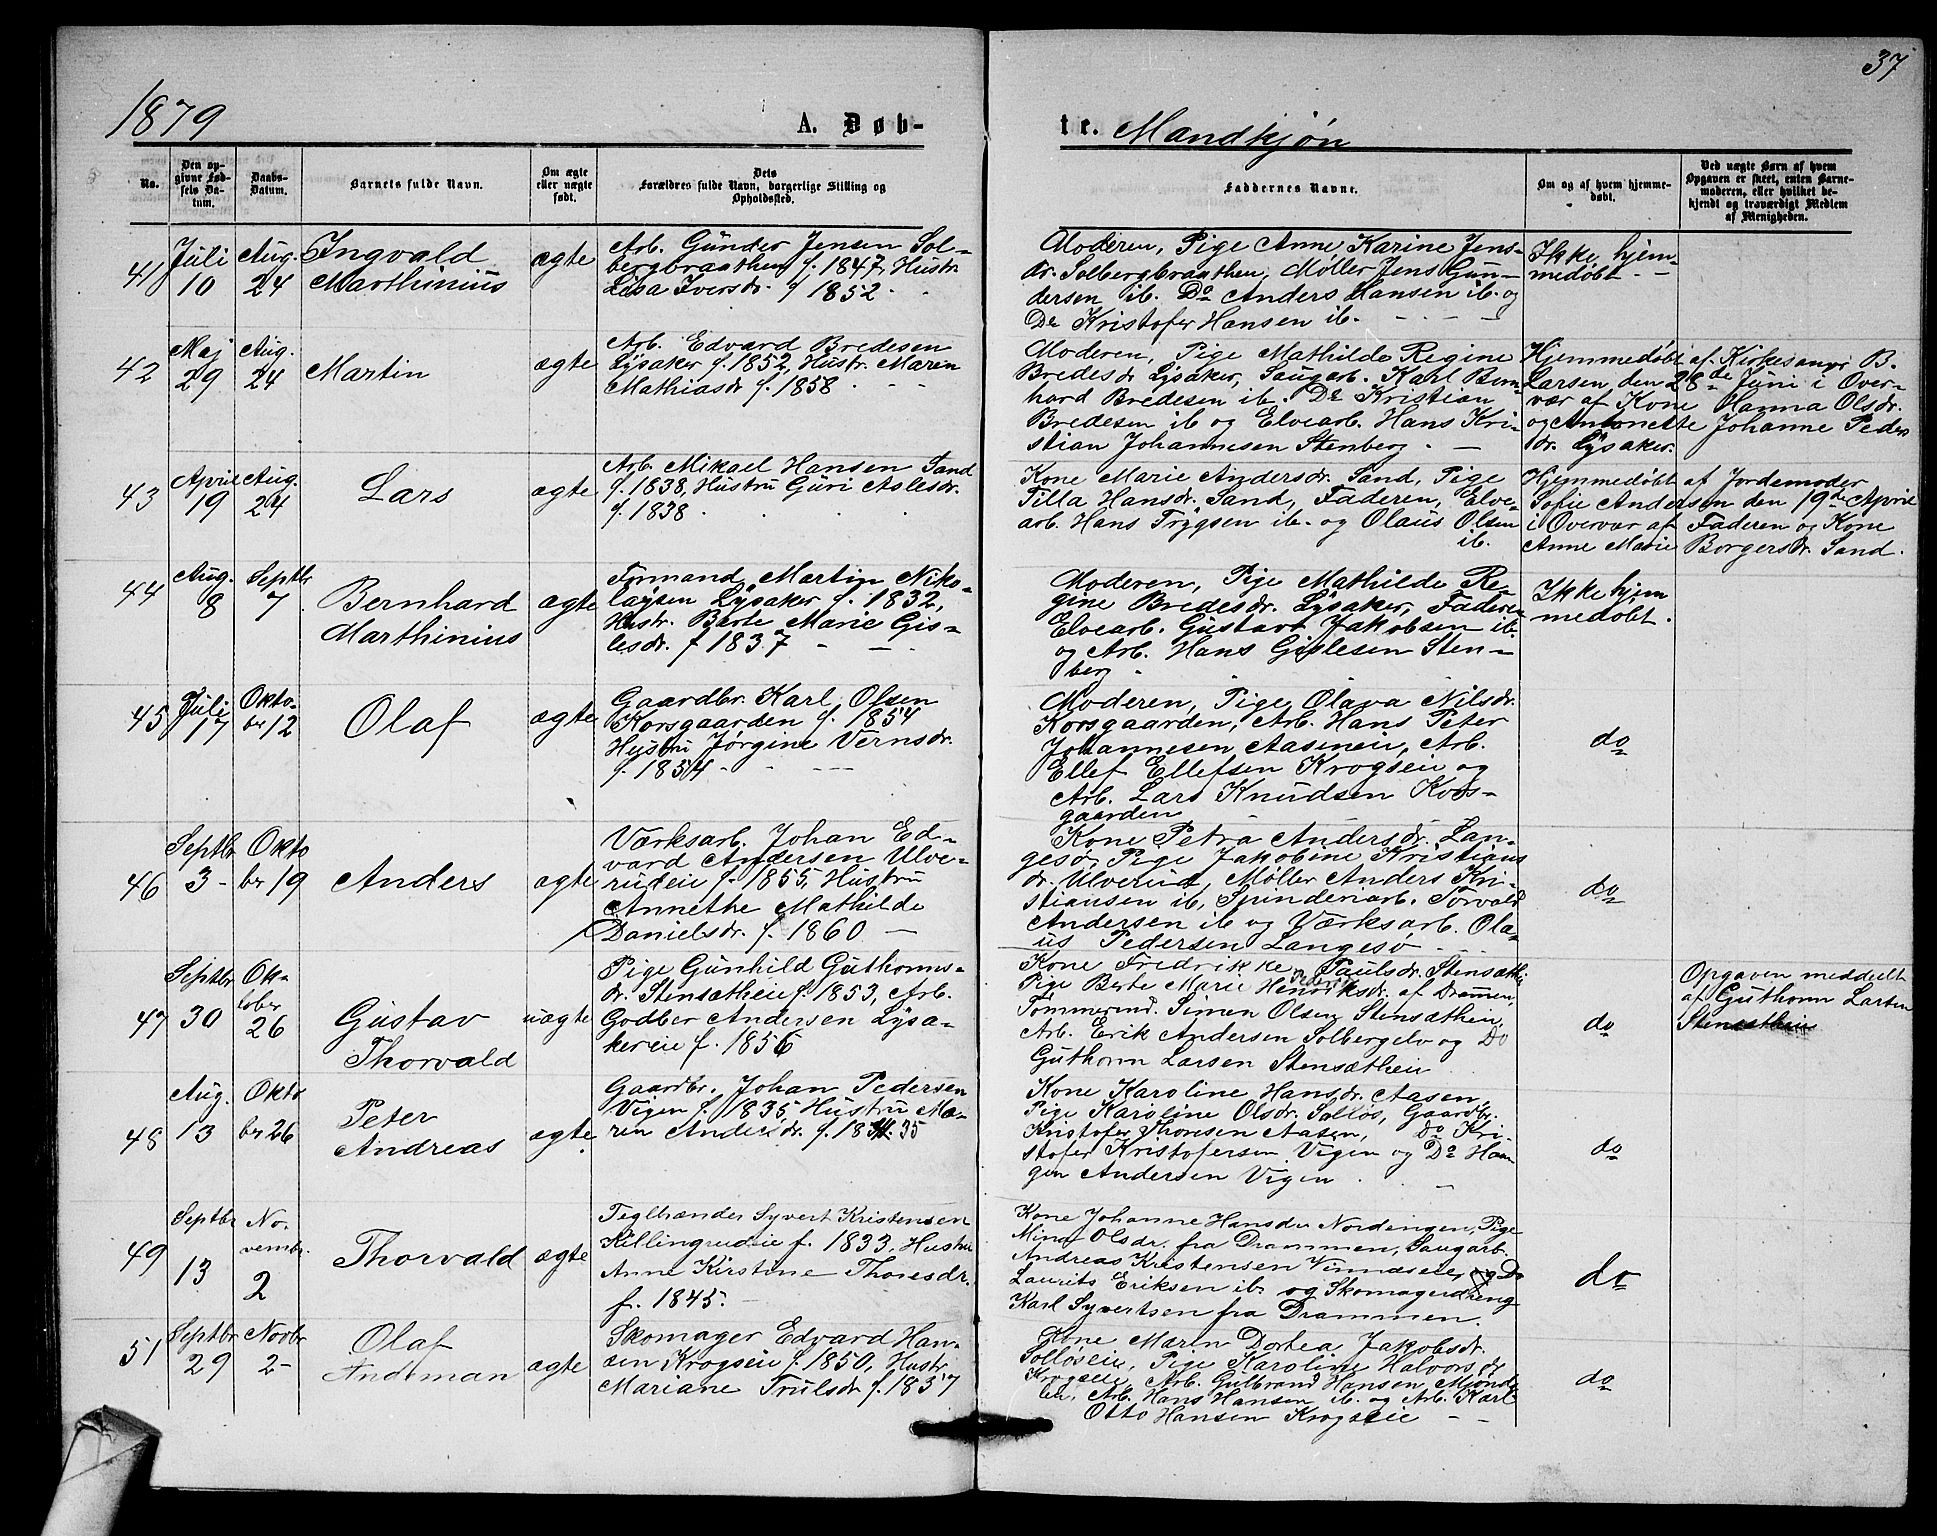 37
1879
A. Døb-
te. Mandkjøn
No.
Den op-
givne Fød-
sels Da-
tum.
Daabs-
Datum.
Barnets fulde Navn.
Om ægte
eller uægte
født.
Dets
Forældres fulde Navn, borgerlige Stilling og
Opholdssted.
Faddernes Navne.
Om og af hvem hjemme-
døbt.
Ved uægte Børn af hvem
Opgaven er skeet, enten Barne-
moderen, eller hvilket be-
kjendt og troværdigt Medlem
af Menigheden.
41
Juli
10
Aug.
24
Ingvald
Marthinius
ægte
Arb. Gunder Jensen Sol-
bergbraathen f. 1847, Hustr.
Lisa Iversdr. f 1852.
Moderen, Pige Anne Karine Jens-
dr. Solbergbraathen, Møller Jens Gun-
dersen ib. Do Anders Hansen ib. og
Do Kristofer Hansen ib.
Ikke hjem-
medøbt
42
Maj
29
Aug.
24
Martin
ægte
Arb. Edvard Bredesen
Lysaker f. 1852, Hustr. Maren
Mathiasdr f. 1858
Moderen, Pige Mathilde Regine
Bredesdr Lysaker, Saugarb. Karl Bern
hard Bredesen ib. Do Kristian
Bredesen ib og Elvearb. Hans Kri-
stian Johannesen Stenberg
Hjemmedøbt af Kirkesangr B.
Larsen, den 28de Juni i Over-
vær af Kone Hanna Olsdr.
og Antonette Johanne Peders
dr. Lysaker.
43
April
19
Aug.
24
Lars
ægte
Arb. Mikael Hansen Sand
f. 1838, Hustru Guri Aslesdr.
f. 1838
Kone Marie Andersdr. Sand, Pige
Tilla Hansdr. Sand, Faderen, Elve-
arb. Hans Trygsen ib. og Olaus Olsen
ib.
Hjemmedøbt af Jordemoder
Sofie Andersen den 19de April
i Overvær af Faderen og Kone
Anne Marie Borgersdr. Sand.
44
Aug.
8
Septbr
7
Bernhard
Marthinius
ægte
Formand Martin Niko-
laysen Lysaker f. 1832,
Hustr. Berte Marie Gis-
lesdr. f 1837
Moderen, Pige Mathilde Re-
gine Bredesdr. Lysaker, Faderen
Elvearb. Gustav Jakobsen ib.
og Arb. Hans Gislesen Sten-
berg
Ikke hjem
medøbt.
45
Juli
17
Okto-
ber 12
Olaf
ægte
Gaardbr. Karl Olsen
Korsgaarden f. 1854
Hustru Jørgine Vernsdr.
f. 1854
Moderen, Pige Olava Nilsdr.
Korsgaarden, Arb. Hans Peter
Johannesen Aaseneie, Arb.
Ellef Ellefsen Krogseie og
Arb. Lars Knudsen Kors-
gaarden
do
46
Septbr
3
Okto
ber 19
Anders
ægte
Værksarb. Johan Ed-
vard Andersen Ulve-
rudeie f. 1855, Hustru
Annethe Mathilde
Danielsdr. f. 1860
Kone Petra Andersdr. Lan-
gesø, Pige Jakobine Kristians
dr. Ulverud, Møller Anders Kri-
stiansen ib, Spinderiarb. Torvald
Andersen ib og Værksarb. Ola-
us Pedersen Langesø
do
47
Septbr
30
Ok-
tober
26
Gustav
Thorvald
uægte
Pige Gunhild Guthorms-
dr. Stensætheie f. 1853, Arb.
Godber Andersen Lysa-
kereie f. 1856
Kone Fredrikke Paulsdr. Stensæthe
Pige Berte Marie Henriksdr. af Drammen,
Tømmermd. Simen Olsen Stensætheie,
Arb. Erik Andersen Solbergelv og Do
Guthorm Larsen Stensætheie
do
Opgaven meddelt
af Guthorm Larsen
Stensætheie
48
Aug.
13
Okto
ber 26
Peter
Andreas
ægte
Gaardbr. Johan Pedersen
Vigen f. 1835, Hustru Ma-
ren Andersdr. f. 1835
Kone Karoline Hansdr. Aasen,
Pige Karoline Olsdr. Solløs, Gaardbr.
Kristofer Thoresen Aasen, Do Kri-
stofer Kristofersen Vigen og Do Han
gen Andersen Vigen
do
49
Septbr
13
No-
vembr.
2
Thorvald
ægte
Teglbrænder Syvert Kristensen
Killingrudeie f. 1833, Hustru
Anne Kirstine Thoresdr.
f. 1845.
Kone Johanne Hansdr Nordengen, Pige
Mina Olsdr. fra Drammen, Saugarb.
Andreas Kristensen Vinnæseie, og Do
Laurits Eriksen ib. og Skomagerdreng
Karl Syvertsen fra Drammen.
do
51
Septbr
29
Novbr
2
Olaf
Andeman
ægte
Skomager Edvard Han-
sen Krogseie f. 1850, Hustr.
Mariane Trulsdr f. 1857
Kone Maren Dortea Jakobsdr.
Solløseie, Pige Karoline Halvorsdr
Krogseie, Arb. Gulbrand Hansen Mjønda-
len, Arb. Hans Hansen ib. og Arb. Karl
Otto Hansen Krogseie
do